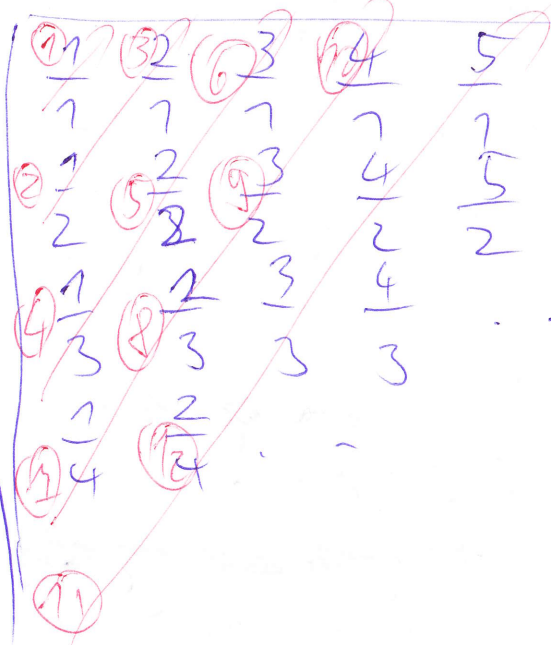 ① 1/1 ③ 2/1 ⑥ 3/1 ⑩ 4/1 5/1
② 1/2 ⑤ 2/2 ⑨ 3/2 4/2 5/2
④ 1/3 ⑧ 2/3 3/3 4/3 . .
⑦ 1/4 ⑫ 2/4 . -
⑪